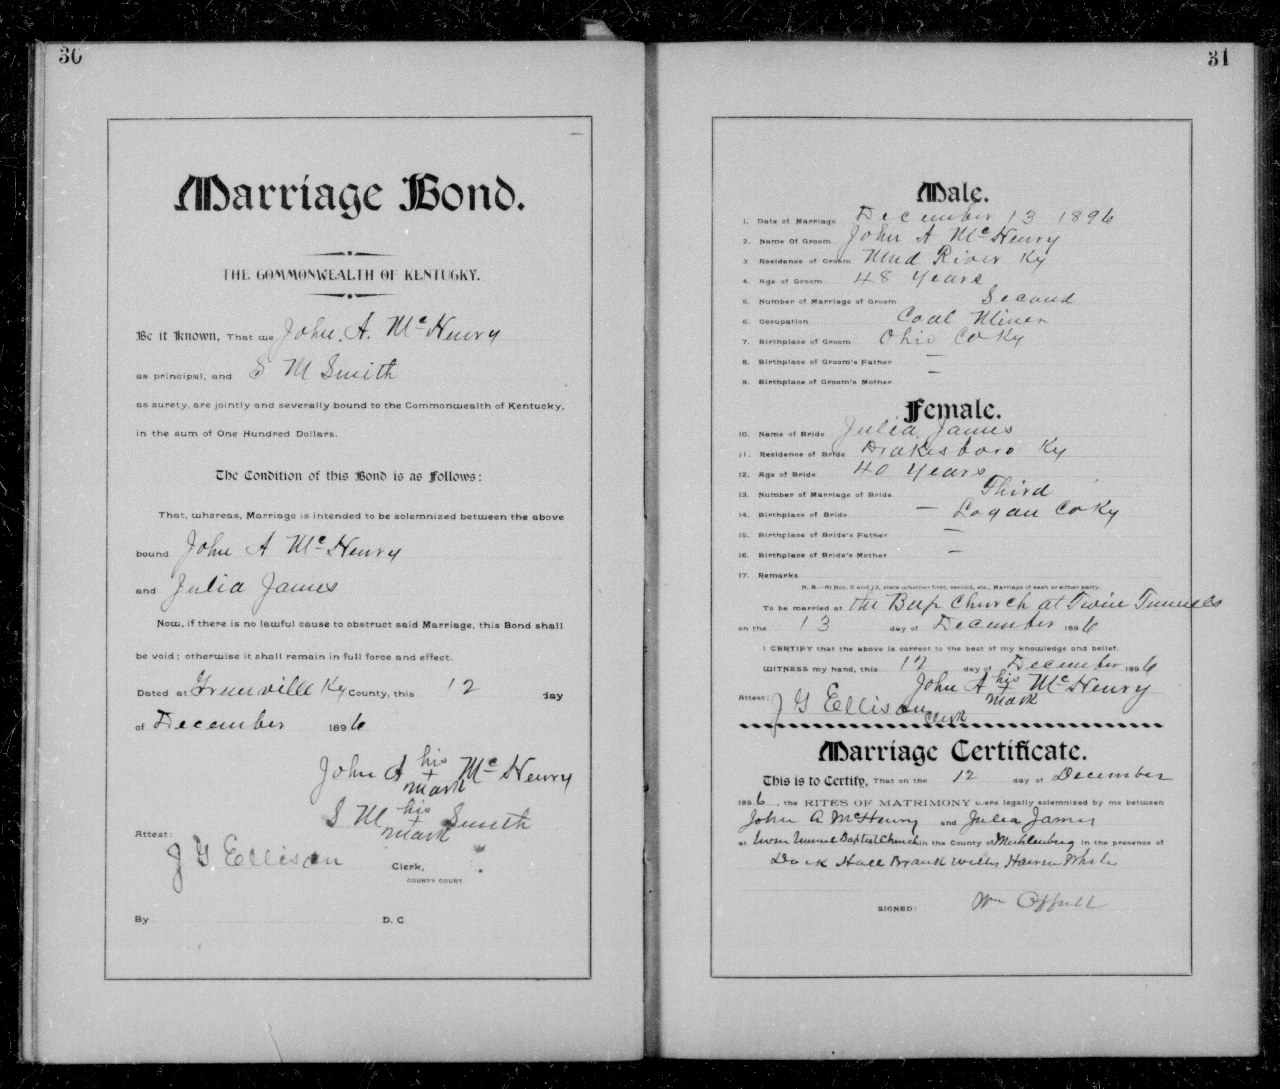 30
Marriage Bond.
THE COMMONWEALTH OF KENTUCKY.
Be it Known, That we John. A. McHenry
as principal, and S M Smith
as surety, are jointly and severally bound to the Commonwealth of Kentucky,
in the sum of One Hundred Dollars.
The Condition of this Bond is as Follows:
That, whereas, Marriage is intended to be solemnized between the above
bound John A McHenry
and Julia James
Now, if there is no lawful cause to obstruct said Marriage, this Bond shall
be void; otherwise it shall remain in full force and effect.
Dated at Greenville Ky County, this 12 day
of December 1896
John A his + mark McHenry
S M his + mark Smith
Attest:
J G Ellison Clerk,
COUNTY COURT.
By D. C
31
Male.
1. Date of Marriage December 13 1896
2. Name Of Groom John A McHenry
3. Residence of Groom Mud River Ky
4. Age of Groom 48 Years
5. Number of Marriage of Groom Second
6. Occupation Coal Miner
7. Birthplace of Groom Ohio Co Ky
8. Birthplace of Groom's Father —
9. Birthplace of Groom's Mother —
Female.
10. Name of Bride Julia James
11. Residence of Bride Drakesboro Ky
12. Age of Bride 40 Years
13. Number of Marriage of Bride Third
14. Birthplace of Bride — Logan Co Ky
15. Birthplace of Bride's Father —
16. Birthplace of Bride's Mother —
17. Remarks
N. B.—At Nos. 5 and 13, state whether first, second, etc., Marriage of each or either party.
To be married at the Bap Church at Twin Tunnels
on the 13 day of December 1896
I CERTIFY that the above is correct to the best of my knowledge and belief.
WITNESS my hand, this 12 day of December 1896
John A his + mark McHenry
Attest: J G Ellison
Clerk
Marriage Certificate.
This is to Certify, That on the 12 day of December
1896, the RITES OF MATRIMONY were legally solemnized by me between
John A McHenry and Julia James
at Twin Tunnel Baptist Church in the County of Muhlenberg in the presence of
Hall
SIGNED: Wm Offutt